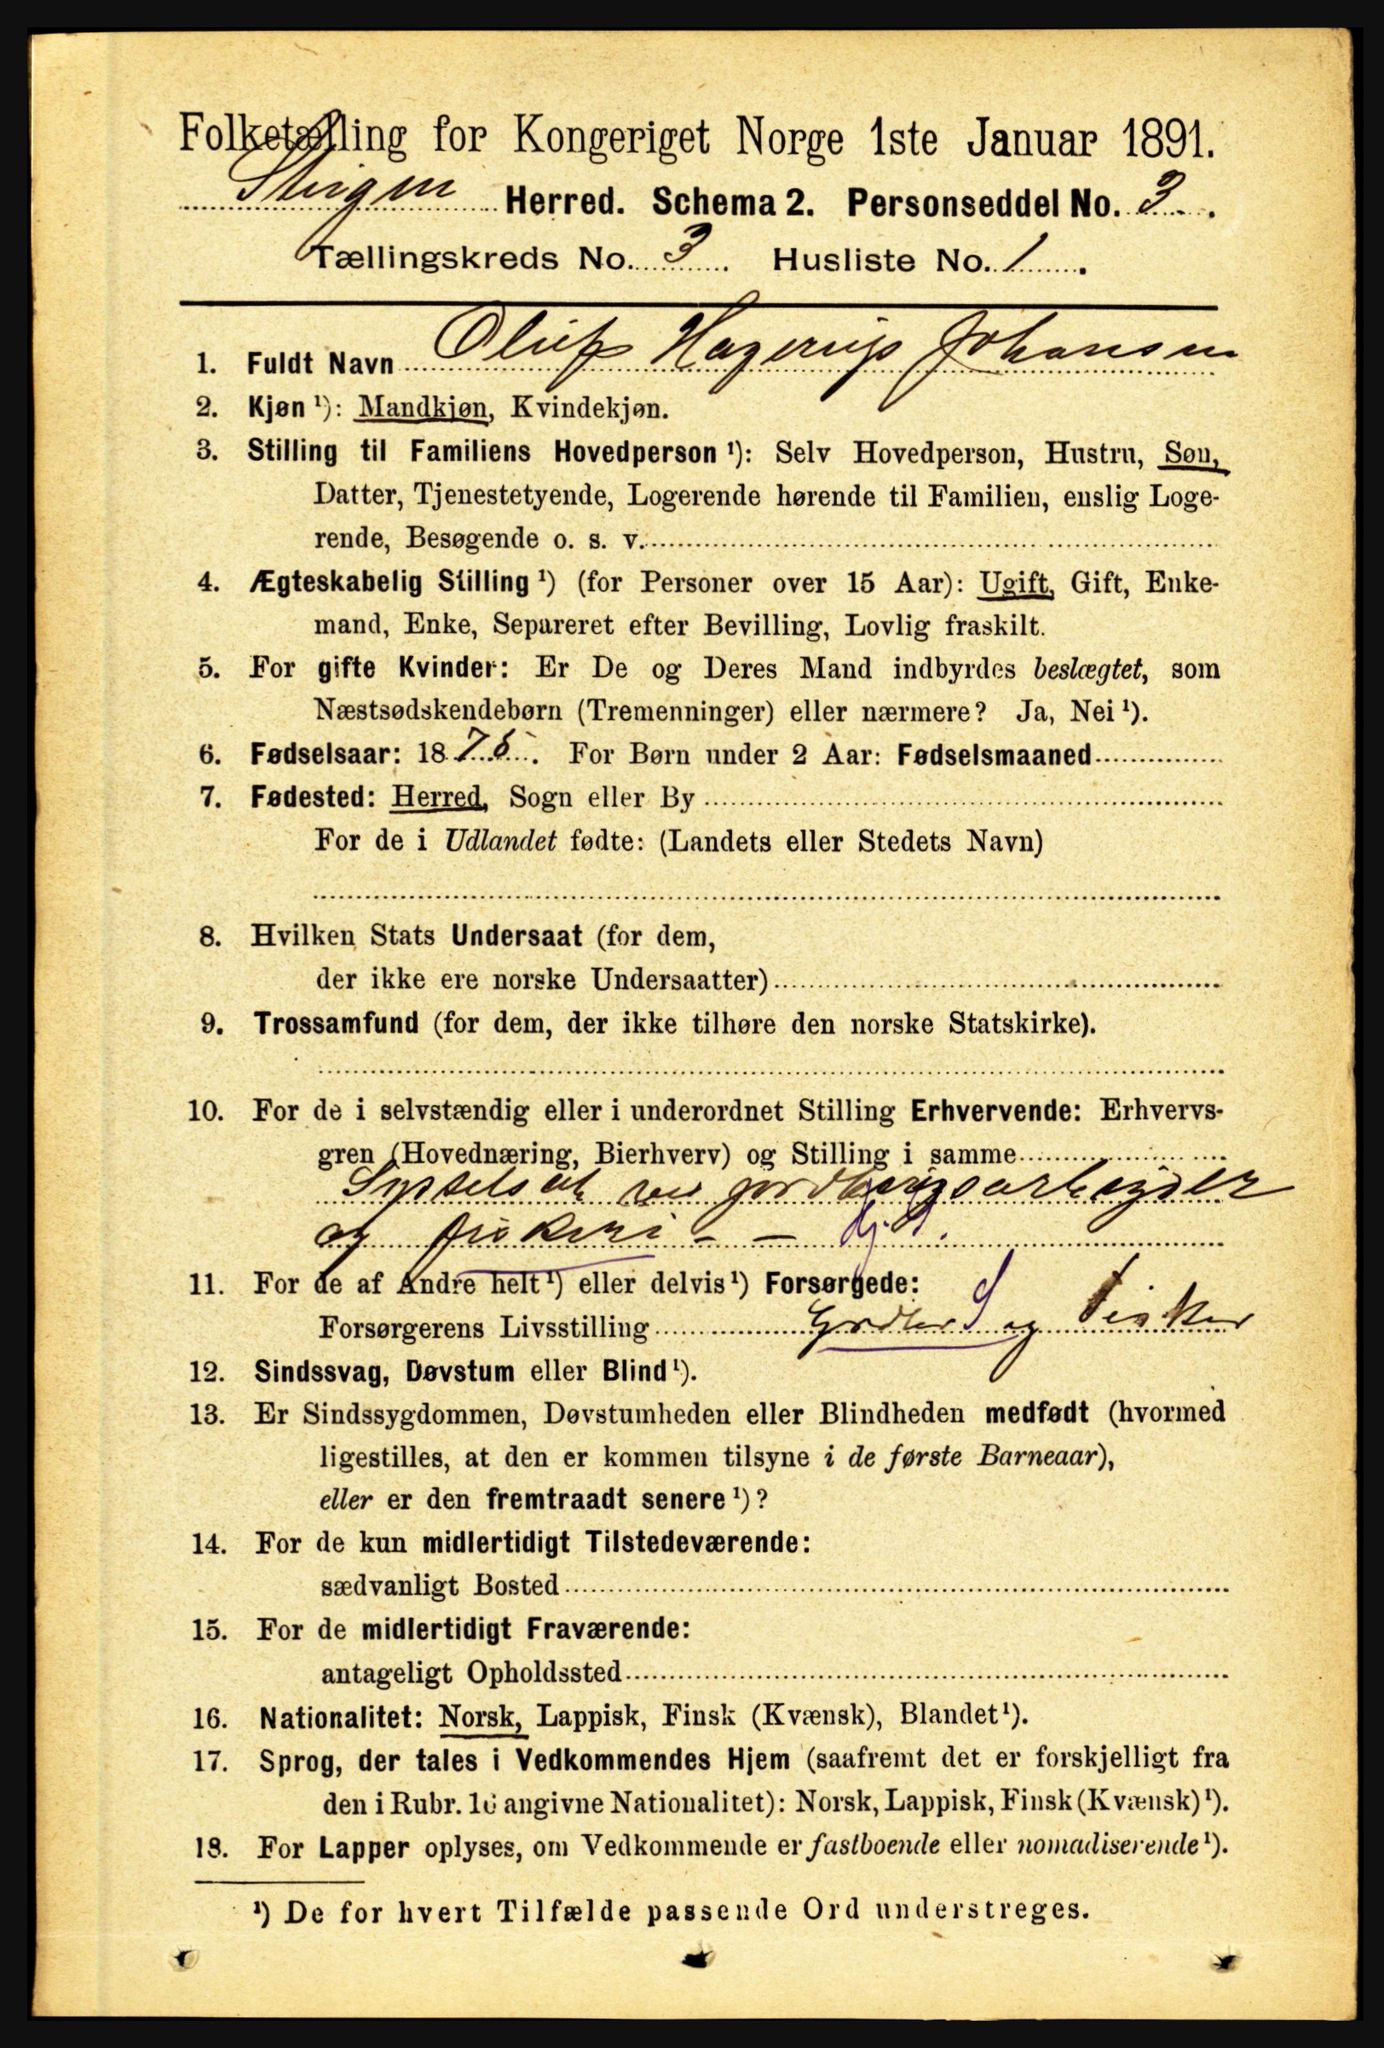 Folketælling for Kongeriget Norge 1ste Januar 1891.
Steigen Herred. Schema 2. Personseddel No. 3.
Tællingskreds No. 3. Husliste No. 1.
1. Fuldt Navn Oluf Hagerup Johansen
2. Kjøn ¹): Mandkjøn, Kvindekjøn.
3. Stilling til Familiens Hovedperson ¹): Selv Hovedperson, Hustru, Søn,
Datter, Tjenestetyende, Logerende hørende til Familien, enslig Loge-
rende, Besøgende o. s. v.
4. Ægteskabelig Stilling ¹) (for Personer over 15 Aar): Ugift, Gift, Enke-
mand, Enke, Separeret efter Bevilling, Lovlig fraskilt.
5. For gifte Kvinder: Er De og Deres Mand indbyrdes beslægtet, som
Næstsødskendebørn (Tremenninger) eller nærmere? Ja, Nei ¹).
6. Fødselsaar: 187 . For Børn under 2 Aar: Fødselsmaaned
7. Fødested: Herred, Sogn eller By
For de i Udlandet fødte: (Landets eller Stedets Navn)
8. Hvilken Stats Undersaat (for dem,
der ikke ere norske Undersaatter)
9. Trossamfund (for dem, der ikke tilhøre den norske Statskirke).
10. For de i selvstændig eller i underordnet Stilling Erhvervende: Erhvervs-
gren (Hovednæring, Bierhverv) og Stilling i samme
Sysselsat ved jordbrugsarbeyder
og fiskeri - -
11. For de af Andre helt ¹) eller delvis ¹) Forsørgede:
Forsørgerens Livsstilling Grdbr S og Fisker
12. Sindssvag, Døvstum eller Blind ¹).
13. Er Sindssygdommen, Døvstumheden eller Blindheden medfødt (hvormed
ligestilles, at den er kommen tilsyne i de første Barneaar),
eller er den fremtraadt senere ¹)?
14. For de kun midlertidigt Tilstedeværende:
sædvanligt Bosted
15. For de midlertidigt Fraværende:
antageligt Opholdssted
16. Nationalitet: Norsk, Lappisk, Finsk (Kvænsk), Blandet ¹).
17. Sprog, der tales i Vedkommendes Hjem (saafremt det er forskjelligt fra
den i Rubr. 16 angivne Nationalitet): Norsk, Lappisk, Finsk (Kvænsk) ¹).
18. For Lapper oplyses, om Vedkommende er fastboende eller nomadiserende ¹).
¹) De for hvert Tilfælde passende Ord understreges.